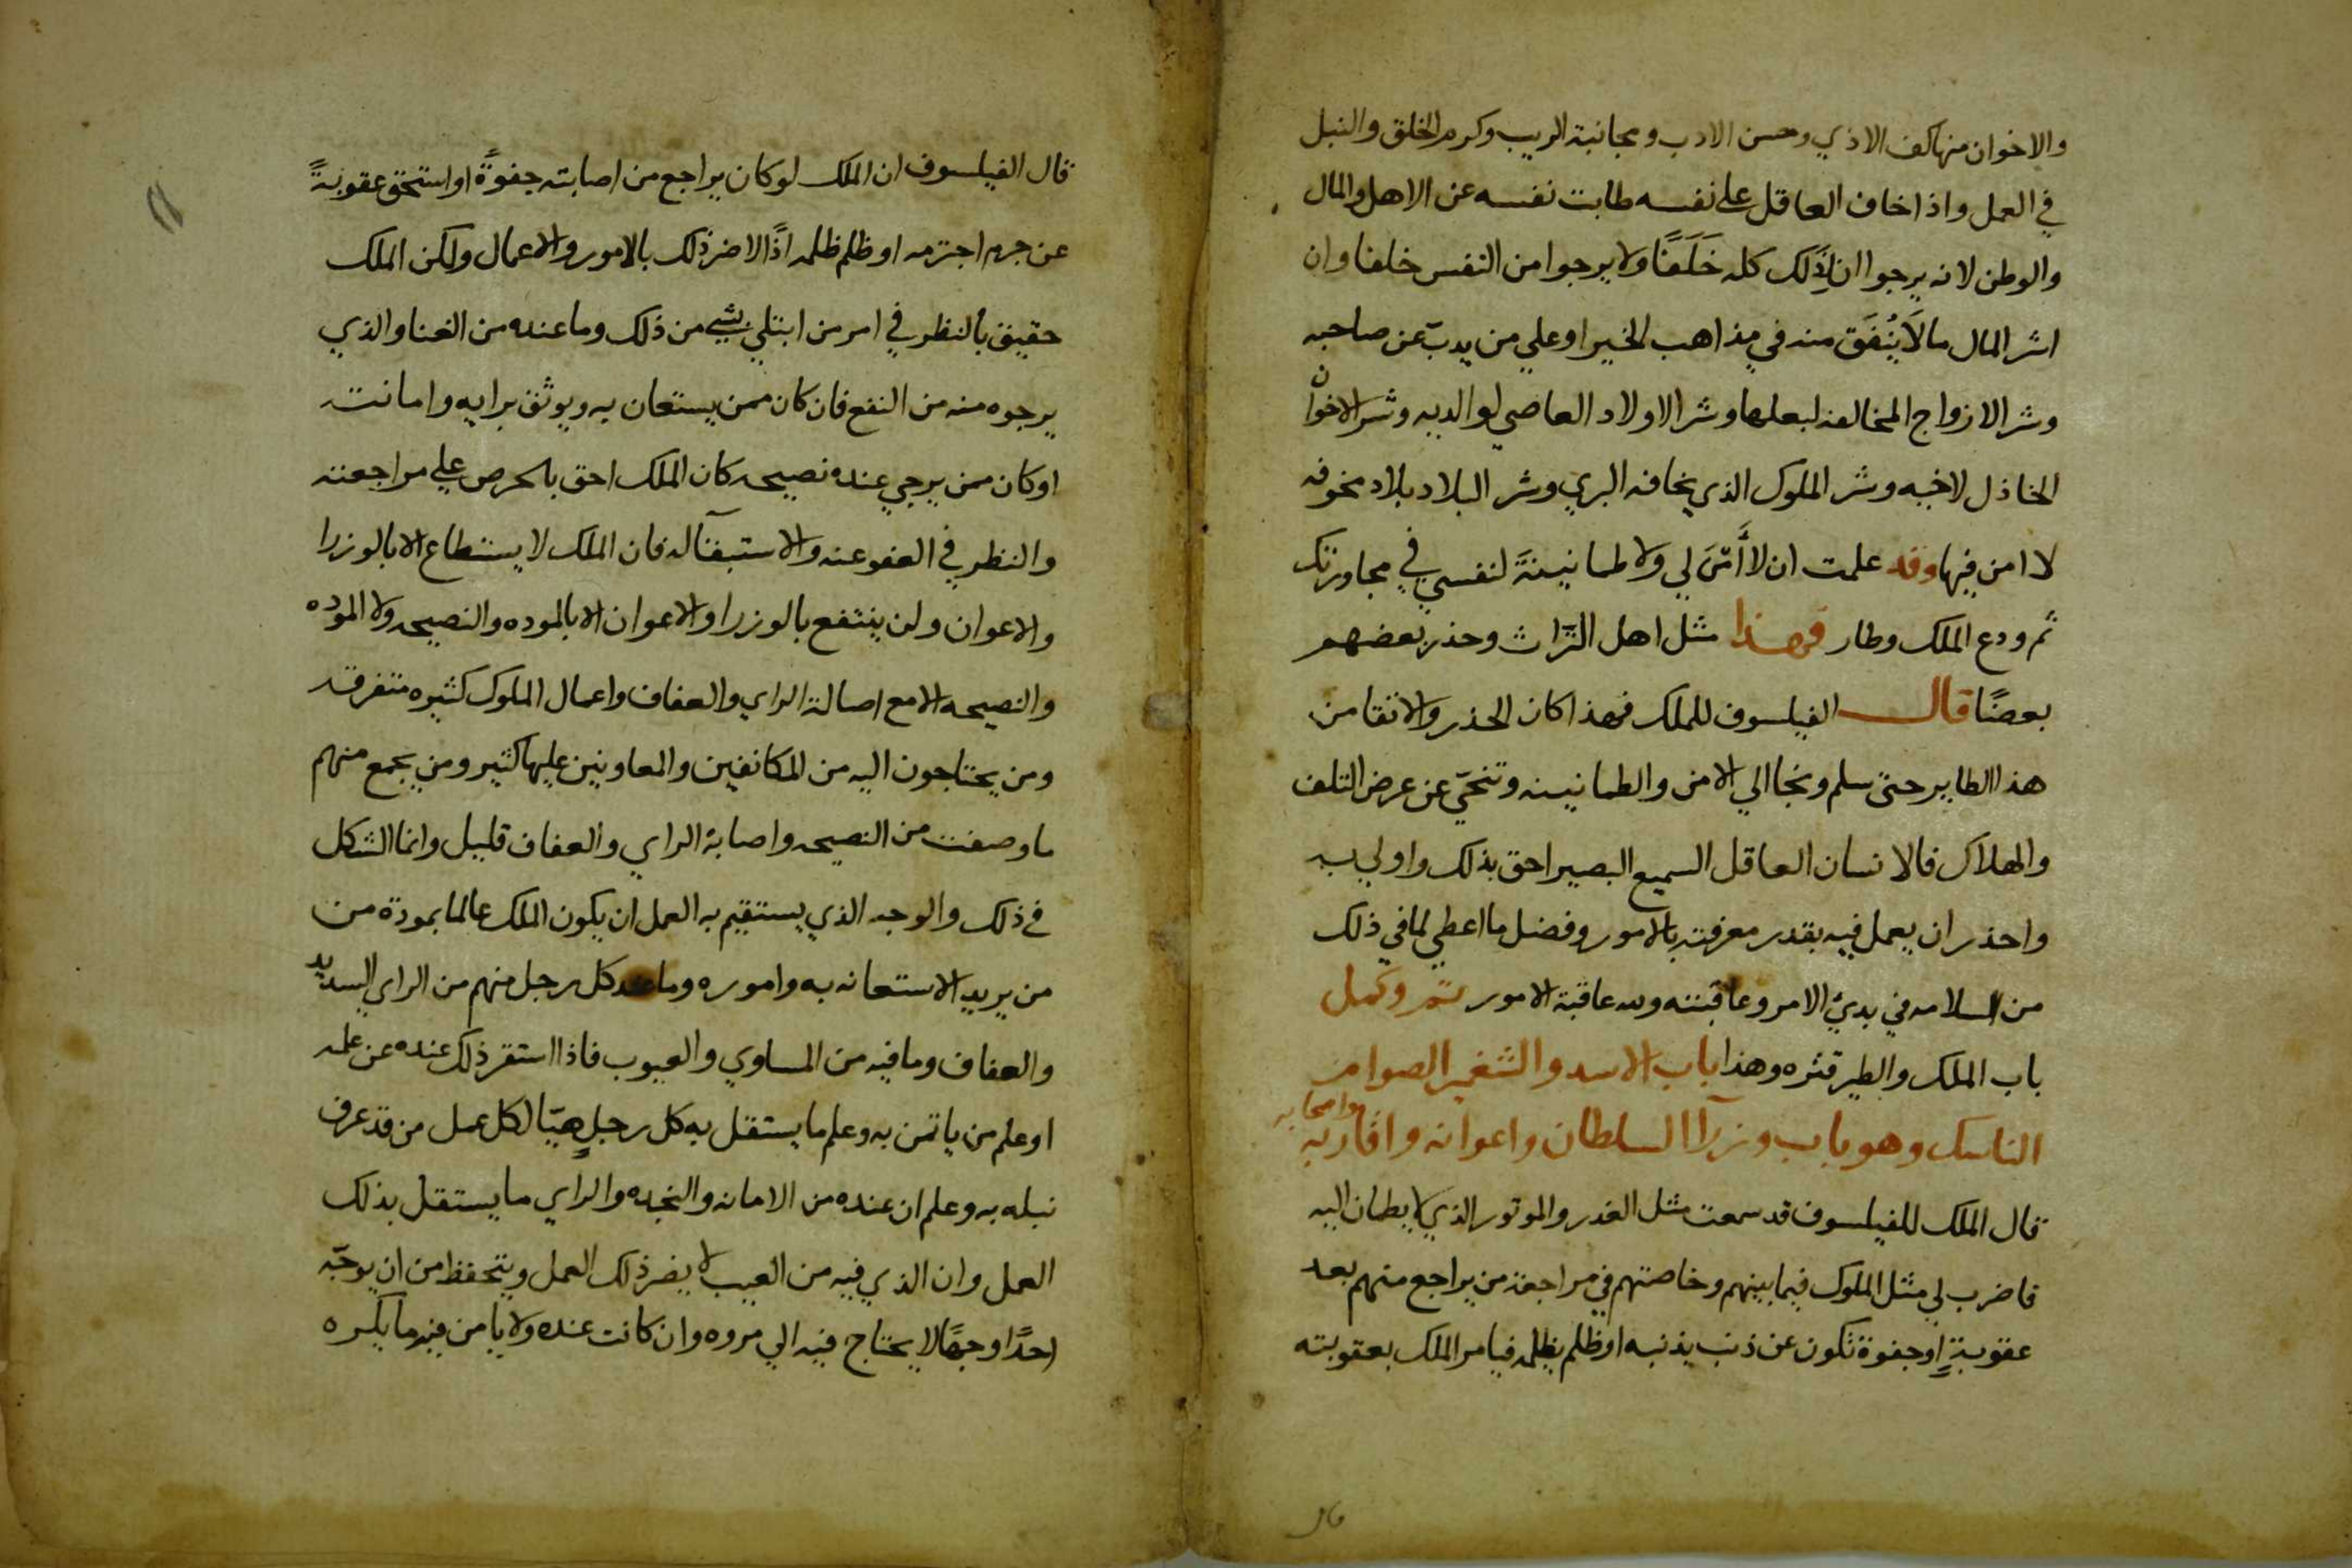 والاخوان منها كف الاذي وحسن الادب ومجانبة الريب وكرم الخلق والنبل
في العمل واذا خاف العاقل علي نفسه طابت نفسه عن الاهل والمال
والوطن لانه يرجوا ان لذلك كله خَلَفًا ولا يرجوا من النفس خلفا وان
اشر المال ما لا يُنْفَق منه في مذاهب الخير او علي من يدبّ عن صاحبه
وشر الازواج المخالفه لبعلها وشر الاولاد العاصي لوالديه وشر الاخوان
الخاذل لاخيه وشر الملوك الذي يخافه البري وشر البلاد بلاد مخوفه
لا امن فيها وقد علمت ان لا أَمْنَ لي ولا طمانينةً لنفسي في مجاورتك
ثم ودع الملك وطار فهذا مثل اهل التِّراث وحذر بعضهم
بعضًا قال الفيلسوف للملك فهذا كان الحذر والاتقا من
هذا الطاير حتي سلم ونجا الي الامن والطمانينه وتنحّي عن عرض التلف
والهلاك فالانسان العاقل السميع البصير احق بذلك واولي به
واحذر ان يعمل فيه بقدر معرفته بالامور وفضل ما اعطي لما في ذلك
من السلامه في بدئ الامر وعاقبته ولله عاقبة الامور تم وكمل
باب الملك والطير قنزه وهذا باب الاسد والشغبر الصوام
الناسك وهو باب وزرآ السلطان واعوانه واقاربه واصحابه
قال الملك للفيلسوف قد سمعت مثل الغدر والموتور الذي لا يطمان اليه
فاضرب لي مثل الملوك فيما بينهم وخاصتهم في مراجعة من يراجع منهم بعد
عقوبةٍ او جفوة تكون عن ذنب يذنبه او ظلم يظلمه فيامر الملك بعقوبته
قال
قال الفيلسوف ان الملك لو كان يراجع من اصابته جفوةً او استحق عقوبةً
عن جرم اجترمه او ظلم ظلمه اذًا لاضر ذلك بالامور والاعمال ولكن الملك
حقيق بالنظر في امر من ابتلي بشي من ذلك وما عنده من الغنا والذي
يرجوه منه من النفع فان كان ممن يستعان به ويوثق برايه وامانته
او كان ممن يرجي عنده نصيحه كان الملك احق بالحرص علي مراجعته
والنظر في العفو عنه والاستبقآ له فان الملك لا يستطاع الا بالوزرا
والاعوان ولن ينتفع بالوزرا والاعوان الا بالموده والنصيحه ولا الموده
والنصيحه الا مع اصالة الراي والعفاف واعمال الملوك كثيره متفرقه
ومن يحتاجون اليه من المكانفين والمعاونين عليها كثير ومن يجمع منهم
ما وصفت من النصيحه واصابة الراي والعفاف قليل وانما الشكل
في ذلك والوجه الذي يستقيم به العمل ان يكون الملك عالما بمودة من
من يريد الاستعانه به واموره وما عند كل رجل منهم من الراي السديد
والعفاف وما فيه من المساوي والعيوب فاذا استقر ذلك عنده عن علمه
او علم من ياتمن به وعلم ما يستقل به كل رجلٍ هيّا لكل عمل من قد عرف
نبله به وعلم ان عنده من الامانه والنجده والراي ما يستقل بذلك
العمل وان الذي فيه من العيب لا يضر ذلك العمل ويتحفظ من ان يوجّه
احدًا وجهًا لا يحتاج فيه الي مروه وان كانت عنده ولا يامن فيه ما يكره